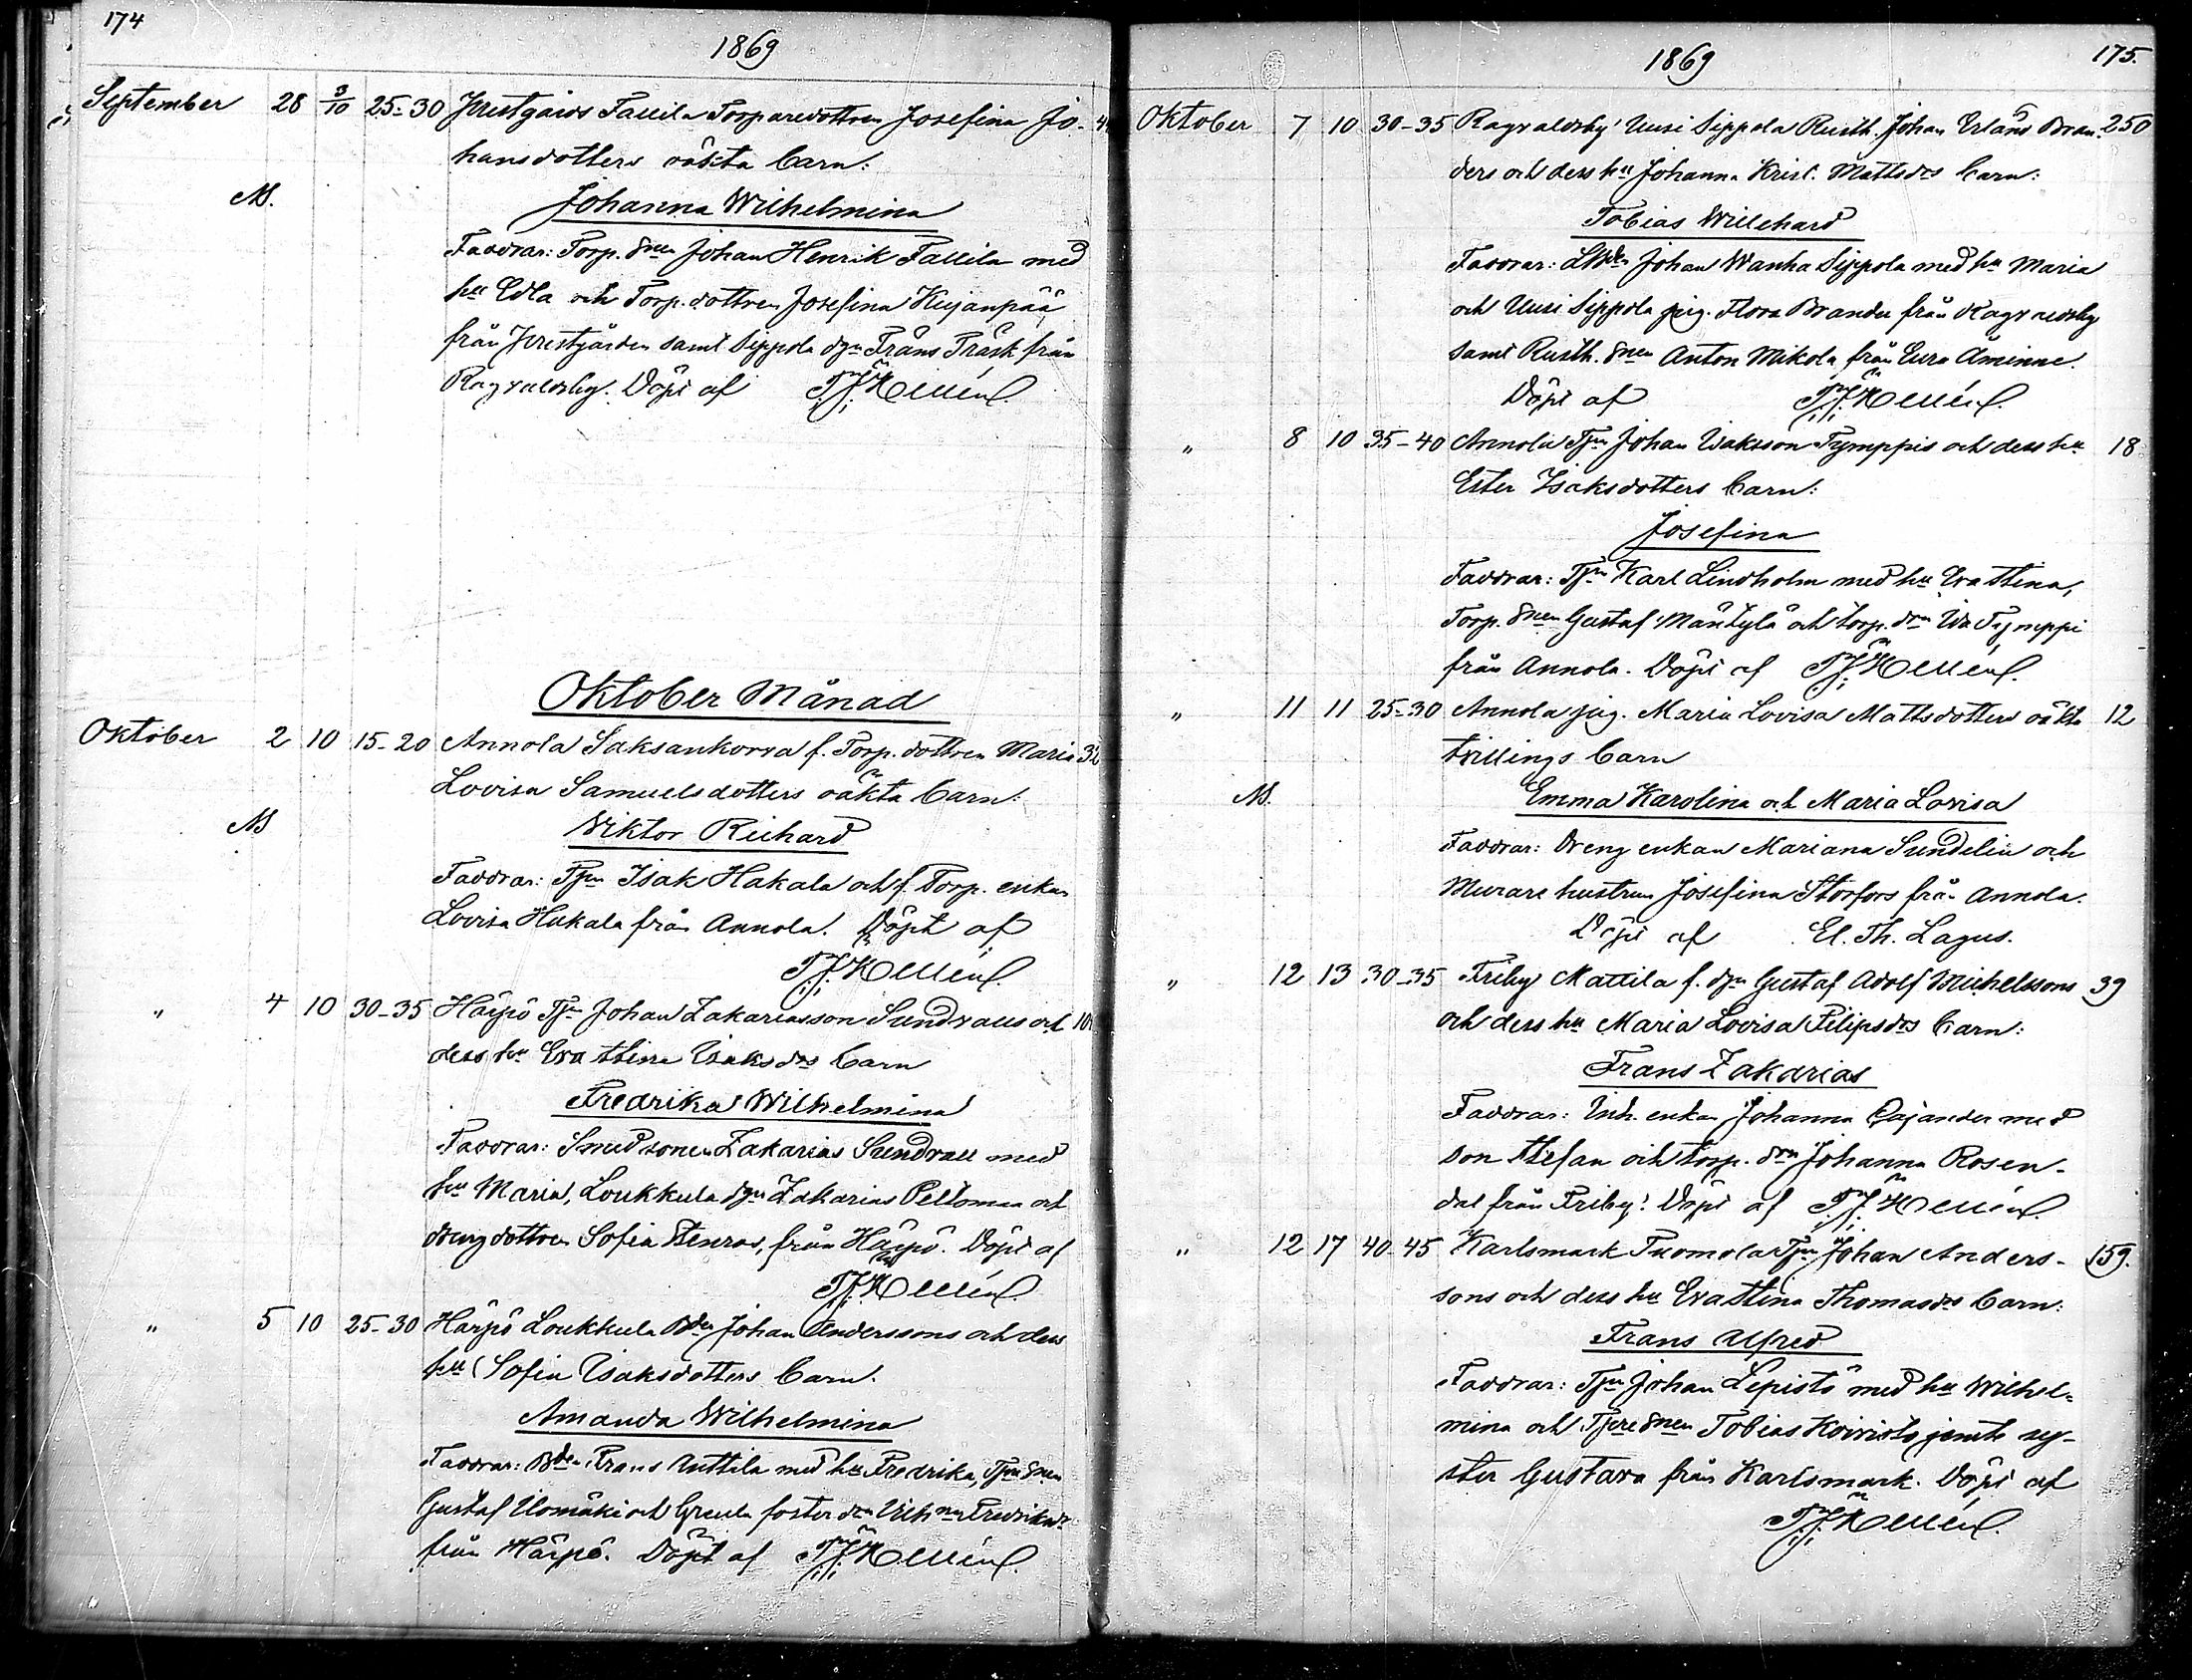 174
1869
September 28 3/10 25-30 Prestgårds Tallila Torparedottren Josefina Jo-
hansdotters oäkta barn:
NB.
Johanna Wilhelmina
Faddrar: Torp. snen Johan Henrik Tallila med
hu Edla och Torp. dottren Josefina Kujanpää
från Prestgården samt Sippola dgn Frans Träsk från
Ragvaldsby. Döpt af
Oktober Månad
Oktober 2 10 15-20 Annola Saksankorva f. Torp. dottren Maria 32
Lovisa Samuelsdotters oäkta barn:
NB
Wiktor Richard
Faddrar: Tjn Isak Hakala och f. Torp. enkan
Lovisa Hakala från Annola. Döpt af
" 4 10 30-35 Härpö Tjn Johan Zakariasson Sundvalls och
dess hu Eva Stina Isaksds barn
Fredrika Wilhelmina
Faddrar: Smedsonen Zakarias Sundvall med
hu Maria, Loukkula dgn Zakarias Peltomaa och
drengdottren Sofia Stenros, från Härpö. Döpt af
" 5 10 25-30 Härpö Loukkula Bden Johan Anderssons och dess
hu Sofia Isaksdotters barn.
Amanda Wilhelmina
Faddrar: Bden Frans Anttila med hu Fredrika, Tjn snen
Gustaf Ilomäki och foster drn Fredrikadr
från Härpö. Döpt af
1869
175.
Oktober 7 10 30-35 Ragvaldsby Uusi Sippola Rusth. Johan Erland Bran- 250
ders och dess hu Johanna Krist. Mattsds barn:
Tobias Willehard
Faddrar: Johan Wanha Sippola med hu Maria
och Uusi Sippola pig. Flora Brander från Ragvaldsby
samt Rusth. snen Anton Mikola från Eura Åminne.
Döpt af
" 8 10 35-40 Annola Tjn Johan Isaksson Tymppis och dess hu 18
Ester Isaksdotters barn:
Josefina
Faddrar: Tjn Karl Lindholm med hu Eva Stina,
Torp. snen Gustaf Mäntylä och torp. drn Ida Tymppi
från Annola. Döpt af
" 11 11 25-30 Annola pig. Maria Lovisa Mattsdotters oäkta 12
tvillings barn
NB.
Emma Karolina och Maria Lovisa
Faddrar: Dreng enkan Mariana Sundelin och
Murare hustrun Josefina Storfors från Annola.
Döpt af El. Th. Lagus.
" 12 13 30-35 Friby Mattila f. dgn Gustaf Adolf Michelssons 39
och dess hu Maria Lovisa Filipsds barn:
Frans Zakarias
Faddrar: Inh. enkan Johanna Cajander med
son Stefan och torp. drn Johanna Rosen-
dal från Friby. Döpt af
" 12 17 40-45 Karlsmark Tuomola Tjn Johan Anders- 159.
sons och dess hu Eva Stina Thomasds barn:
Frans Alfred
Faddrar: Tjn Johan Lepistö med hu Wilhel-
mina och Tjn snen Tobias Koivisto jemte sy-
ster Gustava från Karlsmark. Döpt af